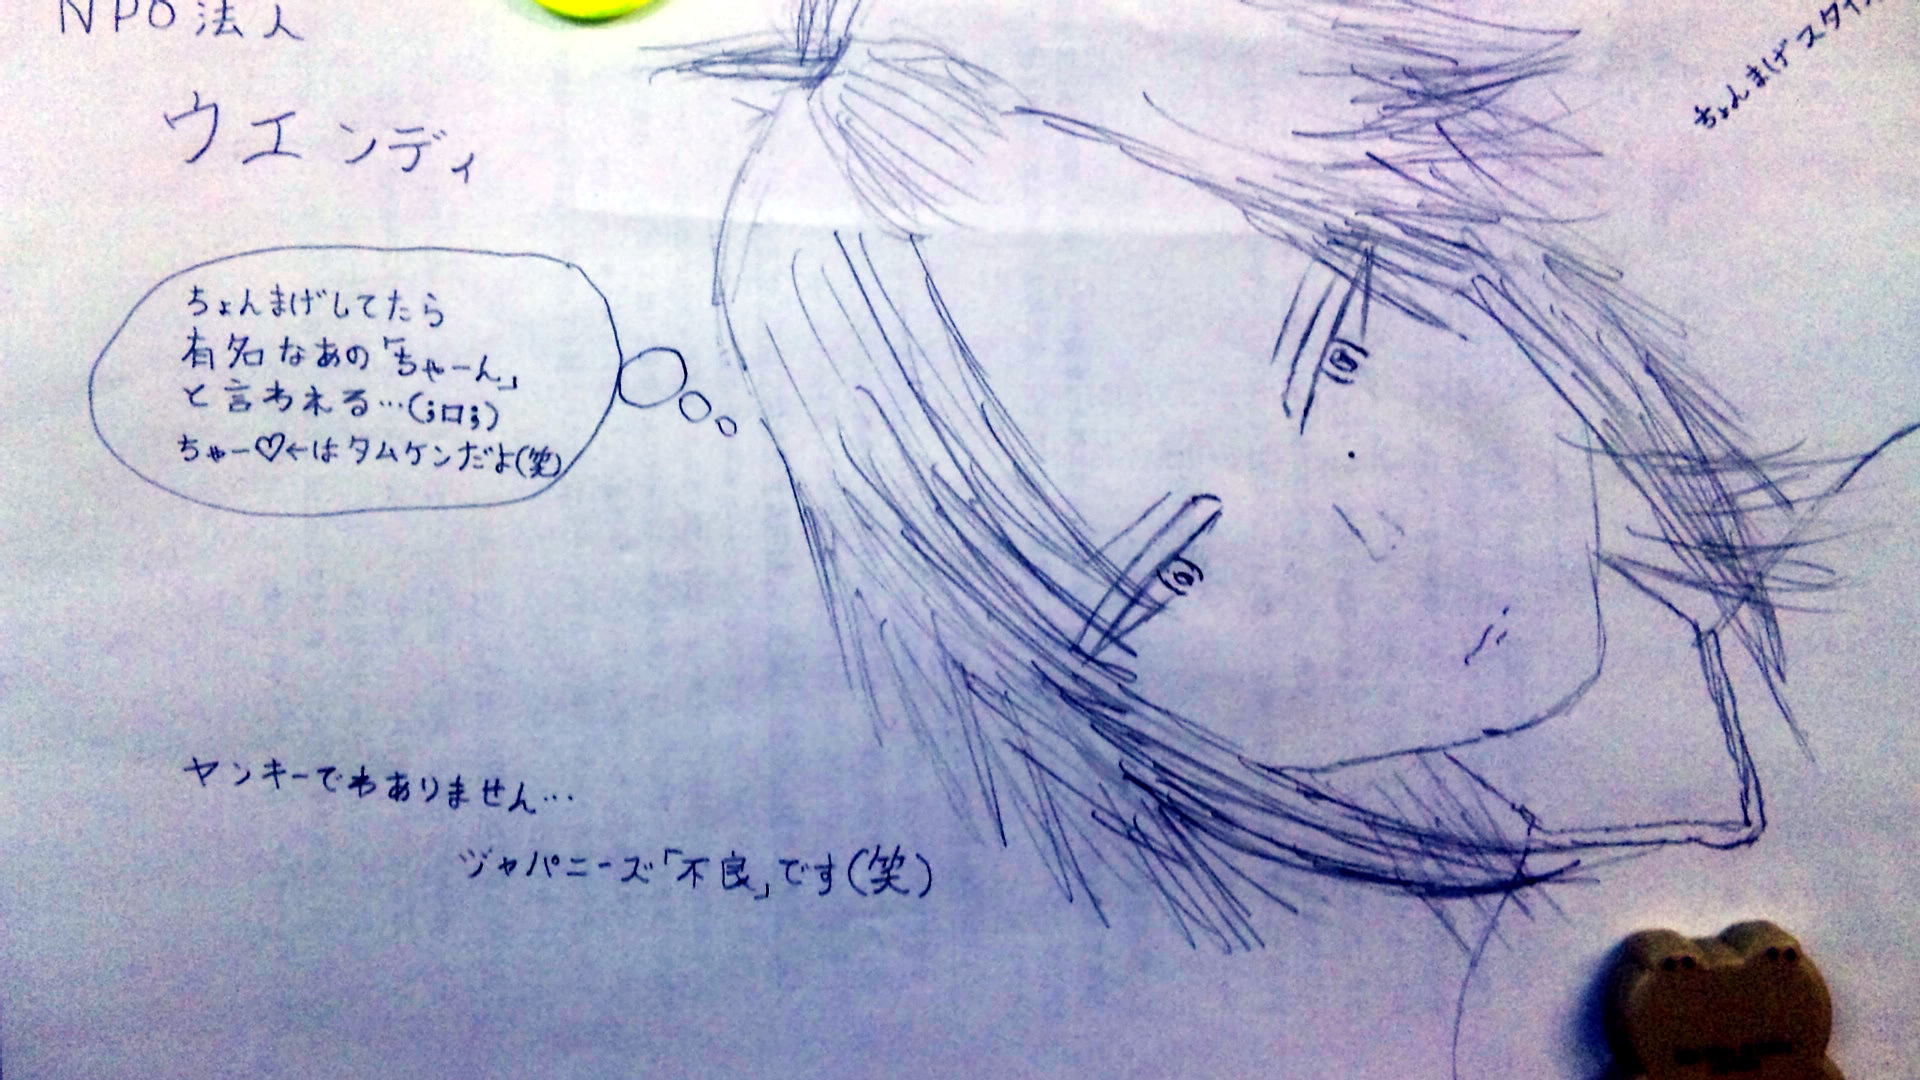 NPO法人
ウエンディ
ちょんまげスタイ
ちょんまげしてたら
有名なあの「ちゃーん」
と言われる…(;ロ;)
ちゃー♡←はタムケンだよ(笑)
ヤンキーでわありません…
ジャパニーズ「不良」です(笑)